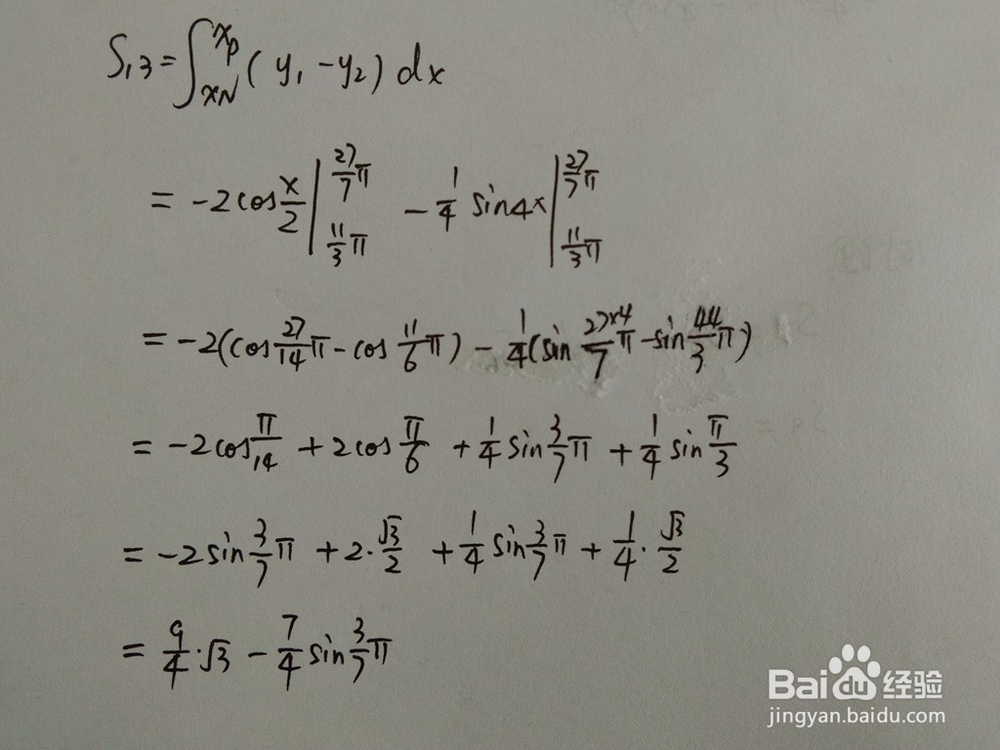 S₁₃ = ∫_{xN}^{xp} (y₁ - y₂) dx
= -2cos x/2 |_{11/3 π}^{27/7 π} - 1/4 sin4x |_{11/3 π}^{27/7 π}
= -2(cos 27/14 π - cos 11/6 π) - 1/4 (sin 27×4/7 π - sin 44/3 π)
= -2cos π/14 + 2cos π/6 + 1/4 sin 3/7 π + 1/4 sin π/3
= -2sin 3/7 π + 2·√3/2 + 1/4 sin 3/7 π + 1/4·√3/2
= 9/4·√3 - 7/4 sin 3/7 π
Baidu 经验
jingyan.baidu.com